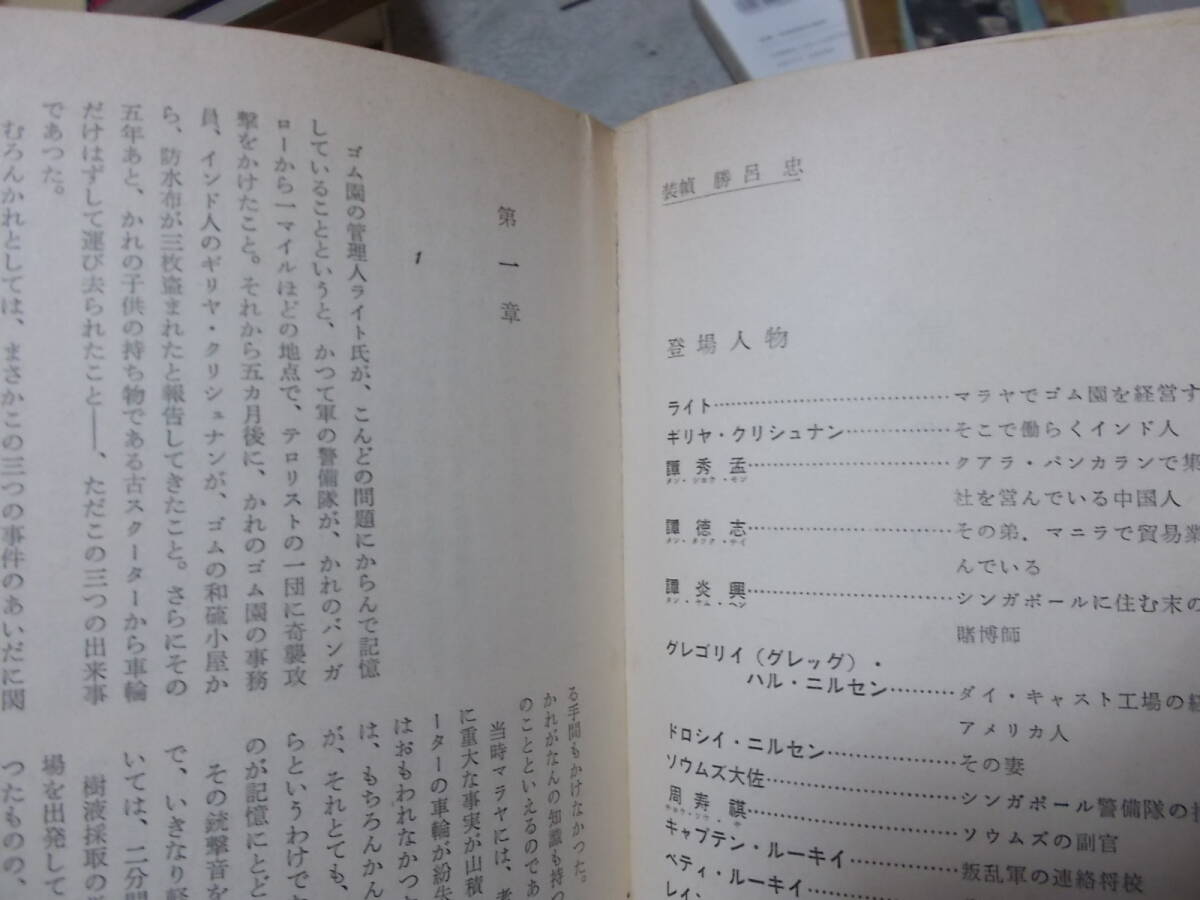 装幀 勝呂忠
登場人物
ライト……………………………マラヤでゴム園を経営す
ギリヤ・クリシュナン…………そこで働らくインド人
譚秀孟……………………………クアラ・パンカランで集
社を営んでいる中国人
譚徳志……………………………その弟．マニラで貿易業
んでいる
譚炎興……………………………シンガポールに住む末の
賭博師
グレゴリイ（グレッグ）・
ハル・ニルセン………ダイ・キャスト工場の経
アメリカ人
ドロシイ・ニルセン……………その妻
ソウムズ大佐……………………シンガポール警備隊の
周寿祺……………………………ソウムズの副官
キャプテン・ルーキイ…………叛乱軍の連絡将校
ベティ・ルーキイ
レイ・
第一章
1
ゴム園の管理人ライト氏が、こんどの問題にからんで記憶
していることというと、かつて軍の警備隊が、かれのバンガ
ローから一マイルほどの地点で、テロリストの一団に奇襲攻
撃をかけたこと。それから五カ月後に、かれのゴム園の事務
員、インド人のギリヤ・クリシュナンが、ゴムの和硫小屋か
ら、防水布が三枚盗まれたと報告してきたこと。さらにその
五年あと、かれの子供の持ち物である古スクーターから車輪
だけはずして運び去られたこと――、ただこの三つの出来事
であつた。
むろんかれとしては、まさかこの三つの事件のあいだに関
る手間もかけなかつた。
かれがなんの知識も持つ
のことといえるのであ
当時マラヤには、
に重大な事実が山積
ーターの車輪が紛失
はおもわれなかつ
は、もちろんかん
が、それとても、
らというわけで
のが記憶にとど
その銃撃音を
で、いきなり軽
いては、二分間
樹液採取の
場を出発して
つたものの、